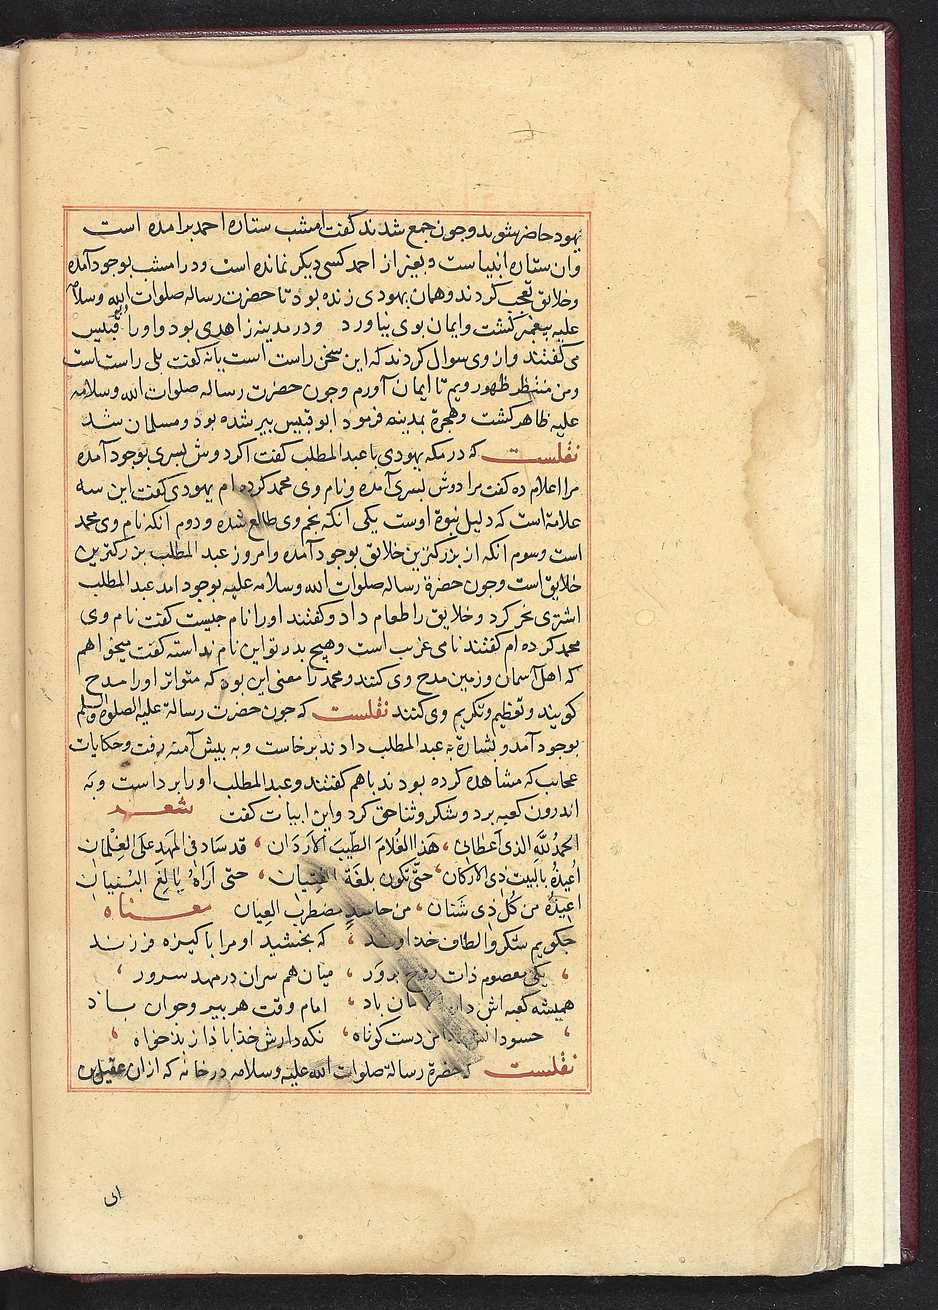 یهود حاضر شوید و چون جمع شدند گفت امشب ستاره احمد برامده است
وان ستاره انبیاست و بغیر از احمد کسی دیکر نمانده است و در امشب بوجود آمده
و خلایق تعجب کردند و همان یهودی زنده بود تا حضرت رساله صلوات الله وسلامه
علیه پیغمبر کشت و ایمان بوی نیاورد و در مدینه زاهدی بود و اورا ابو قبیس
می کفتند و از وی سوال کردند که این سخن راست است یا نه کفت بلی راست است
ومن منتظر ظهور ویم تا ایمان آورم وچون حضرت رساله صلوات الله وسلامه
علیه ظاهر کشت وهجرة بمدینه فرمود ابو قبیس پیر شده بود و مسلمان شد
نقلست که در مکه یهودی با عبد المطلب کفت اکر دوش پسری بوجود آمده
مرا اعلام ده کفت مرا دوش پسری آمده و نام وی محمد کرده ام یهودی کفت این سه
علامة است که دلیل نبوة اوست یکی آنکه نجم وی طالع شده و دوم آنکه نام وی محمد
است وسوم آنکه از بزرکترین خلایق بوجود آمده وامروز عبد المطلب بزرکترین
خلایق است وچون حضرة رساله صلوات الله وسلامه علیه بوجود امد عبد المطلب
اشتری نحر کرد و خلایق را طعام داد و کفتند اورا نام چیست کفت نام وی
محمد کرده ام کفتند نامی غریب است وهیچ پدر تو این نام نداسته کفت میخواهم
که اهل آسمان وزمین مدح وی کنند ومحمد را معنی این بود که متواتر اورا مدح
کویند وتعظیم وتکریم وی کنند نقلست که چون حضرت رسالة علیه الصلوة والسلم
بوجود آمد و بشارة به عبد المطلب دادند برخاست و به پیش آمنه رفت وحکایات
عجایب که مشاهده کرده بودند باهم کفتند وعبد المطلب اورا برداست و به
اندرون کعبه برد و شکر و ثنا حق کرد و این ابیات کفت شعر
الحمد لله الذی اعطانی ، هذا الغلام الطیب الاردان ، قد ساد فی المهد علی الغلمان
اعیذه بالبیت ذی الارکان ، حتی یکون بلغة الفتیان ، حتی اراه بالغ البنیان
اعیذه من کل ذی شنان ، من حاسد مضطرب العیان معناه
چکویم شکر والطاف خداوند ، که بخشید او مرا باکیزه فرزند
، یکی معصوم ذات روح پرور ، میان هم سران در مهد سرور ،
همیشه کعبه اش دار الامان باد ، امام وقت هر پیر وجوان باد
، حسودانش را من دست کوتاه ، نکه دارش خدایا از بدخواه ،
نقلست که حضرة رسالة صلوات الله علیه وسلامه در خانه که ازان عقیل بن
ابی